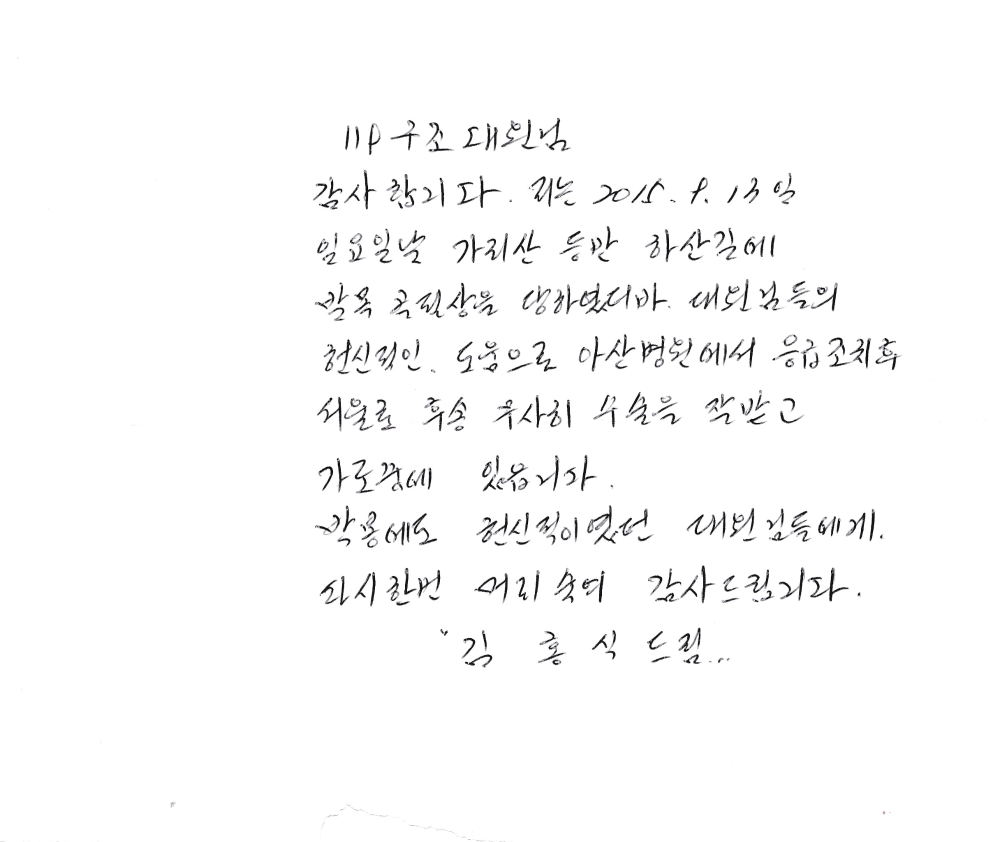 119 구조 대원님
감사합니다. 저는 2015. 9. 13일
일요일날 가리산 등반 하산길에
발목 골절상을 당하였디바. 대원님들의
헌신적인. 도움으로 아산병원에서 응급조치후
서울로 후송 무사히 수술을 잘받고
가료중에 있읍니다.
악용에도 헌신적이였던 대원님들에게.
다시한번 머리 숙여 감사드립니다.
"김 홍 식 드림...